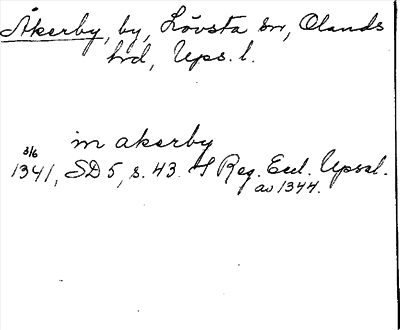 Åkerby, by, Lövsta sn, Olands
hd, Ups. l.
in akerby
3/6
1341, SD 5, s. 43. Reg. Eccl. Upsal.
av 1344.